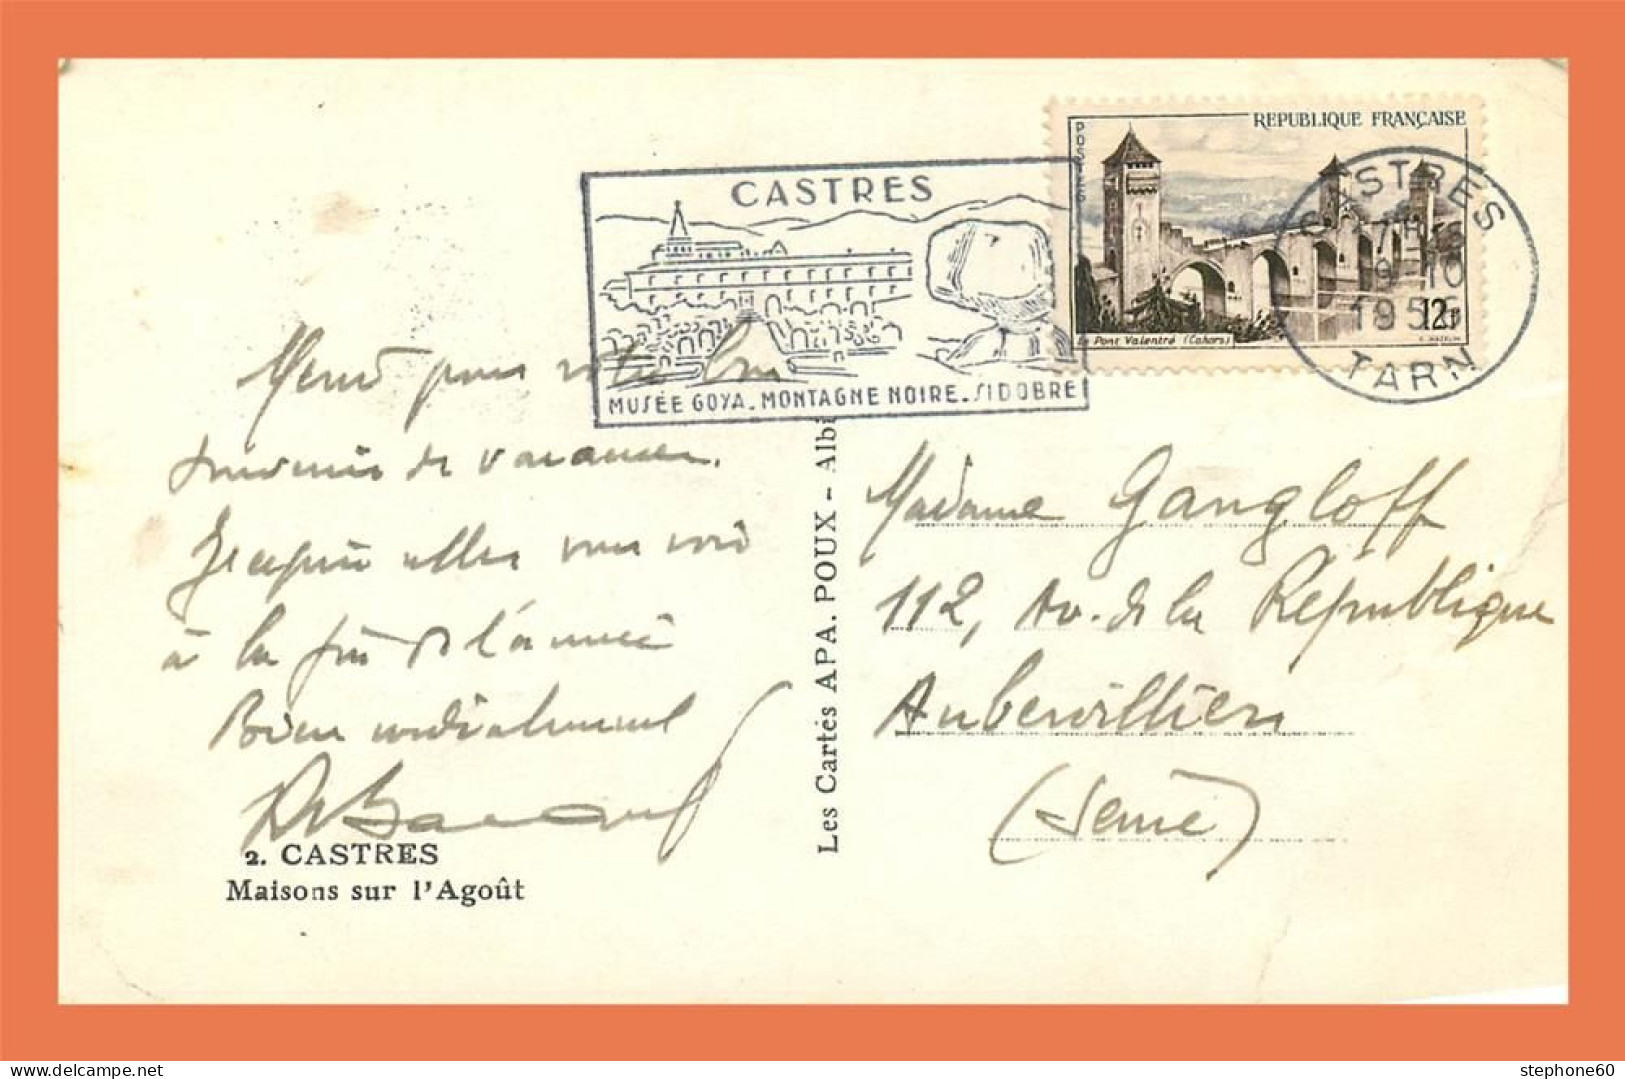 REPUBLIQUE FRANÇAISE
POSTES
Le Pont Valentré (Cahors)
12F
CASTRES
9-10
TARN
CASTRES
MUSÉE GOYA. MONTAGNE NOIRE. SIDOBRE
Merci pour votre bon
souvenir de vacances.
J'espère aller vous voir
à la fin de l'année
Bien cordialement
2. CASTRES
Maisons sur l'Agoût
Les Cartes APA. POUX - Albi
Madame Gangloff
112, Av. de la République
Aubervilliers
(Seine)
www.delcampe.net
stephone60